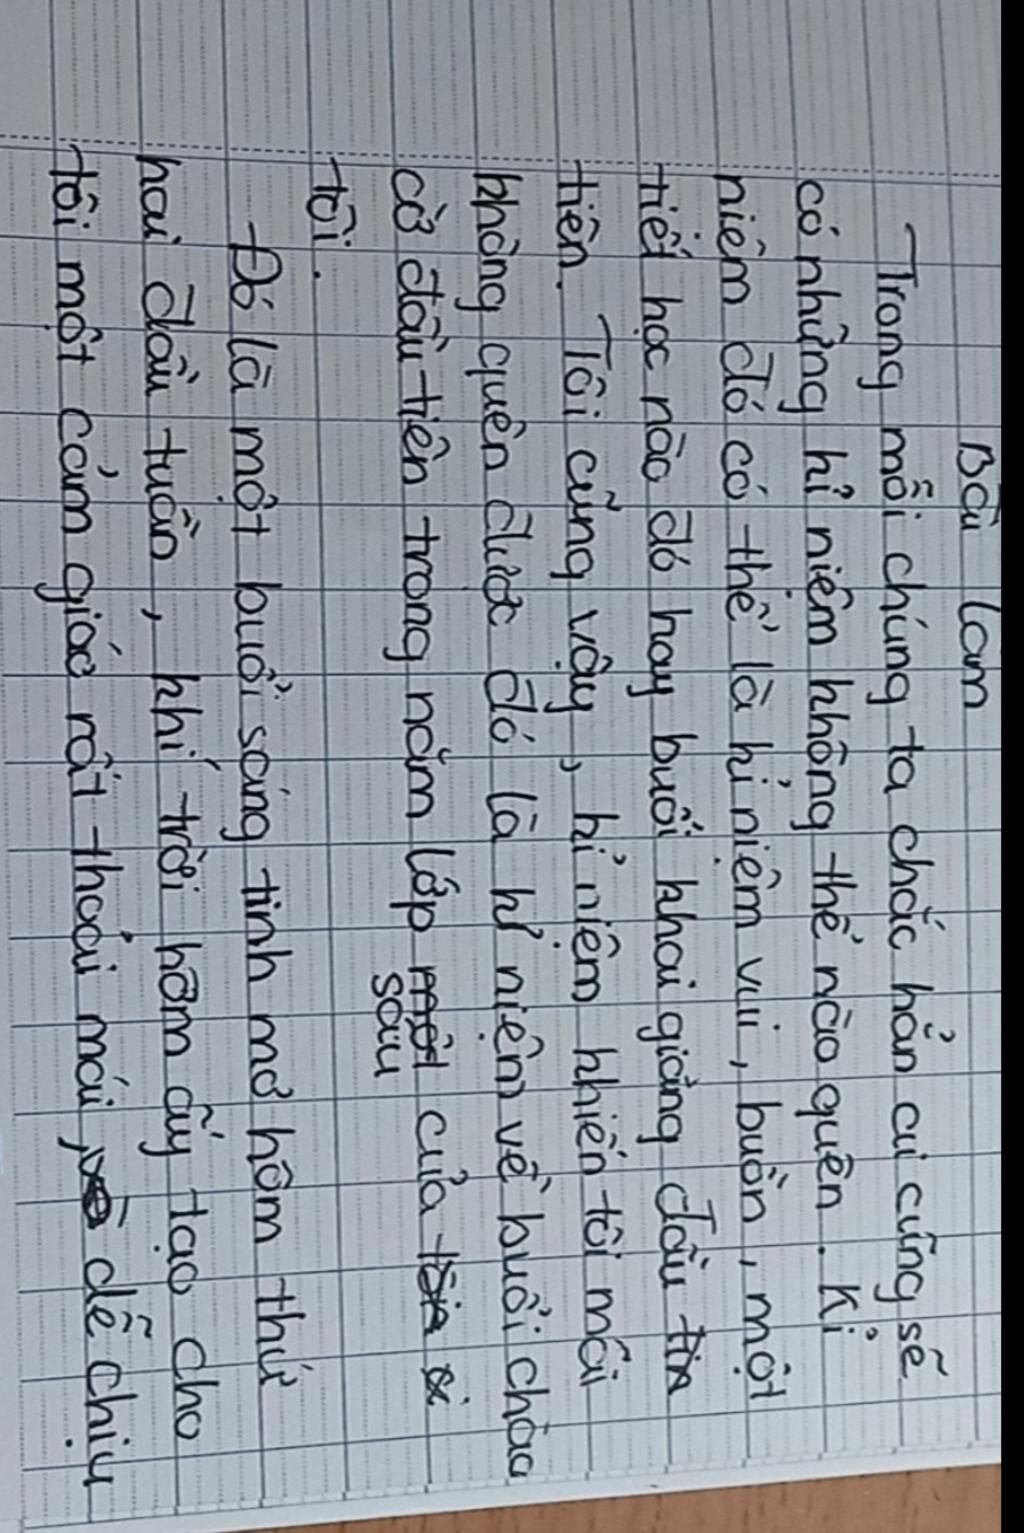 Bài làm
Trong mỗi chúng ta chắc hẳn cui cũng sẽ
có những kỉ niệm không thể nào quên. Kỉ
niệm đó có thể là kỉ niệm vui, buồn, một
tiết học nào đó hay buổi khai giảng đầu
tiên. Tôi cũng vậy, kỉ niệm khiến tôi mãi
không quên được đó là kỉ niệm về buổi chào
cờ đầu tiên trong năm lớp sáu của
tôi.
Đó là một buổi sáng tinh mơ hôm thứ
hai đầu tuần, khí trời hôm ấy tạo cho
tôi một cảm giác rất thoải mái, dễ chịu